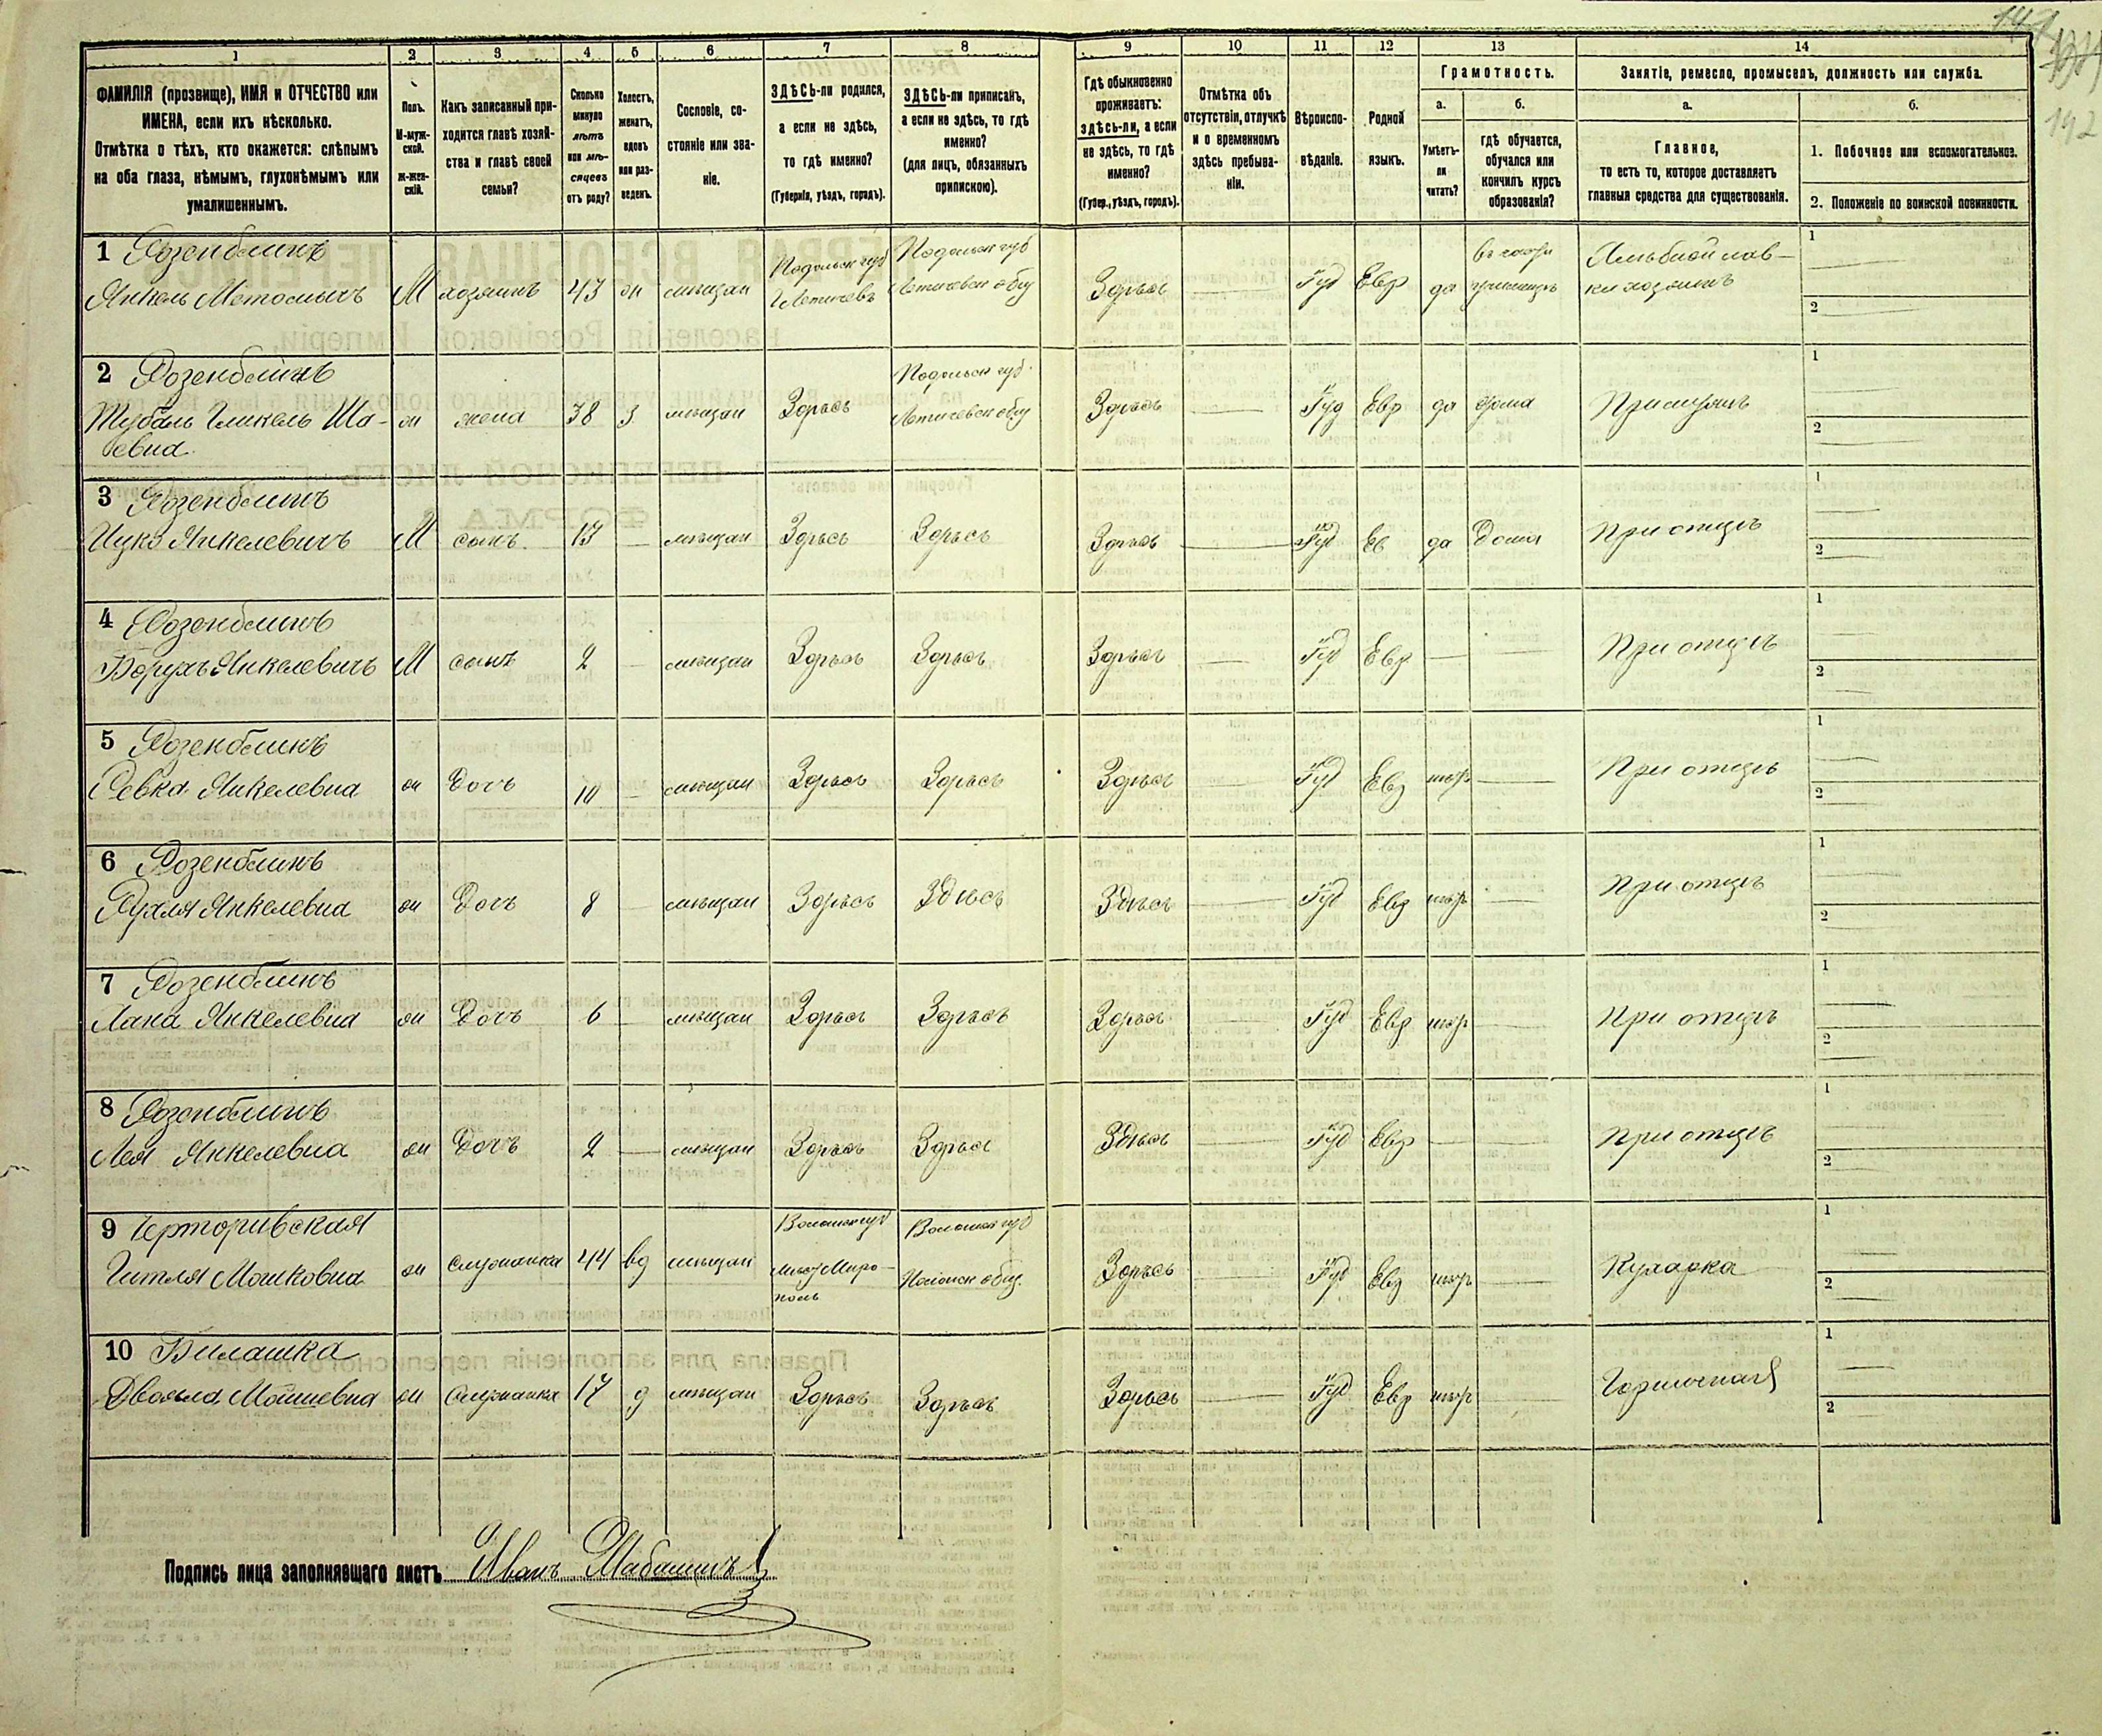 147
192
1
2
3
4
5
6
7
8
9
10
11
12
13
14
ФАМИЛІЯ (прозвище), ИМЯ и ОТЧЕСТВО или
ИМЕНА, если ихъ нѣсколько.
Отмѣтка о тѣхъ, кто окажется: слѣпымъ
на оба глаза, нѣмымъ, глухонѣмымъ или
умалишеннымъ.
Полъ.
М-муж-
ской.
ж-жен-
скій.
Какъ записанный при-
ходится главѣ хозяй-
ства и главѣ своей
семьи?
Сколько
минуло
лѣтъ
или мѣ-
сяцевъ
отъ роду?
Холостъ,
женатъ,
вдовъ
или раз-
веденъ.
Сословіе, со-
стояніе или зва-
ніе.
ЗДѢСЬ-ли родился,
а если не здѣсь,
то гдѣ именно?
(Губернія, уѣздъ, городъ).
ЗДѢСЬ-ли приписанъ,
а если не здѣсь, то гдѣ
именно?
(для лицъ, обязанныхъ
припискою).
Гдѣ обыкновенно
проживаетъ:
здѣсь-ли, а если
не здѣсь, то гдѣ
именно?
(Губер., уѣздъ, городъ).
Отмѣтка объ
отсутствіи, отлучкѣ
и о временномъ
здѣсь пребыва-
ніи.
Вѣроиспо-
вѣданіе.
Родной
языкъ.
Грамотность.
а.
Умѣетъ-
ли
читать?
б.
гдѣ обучается,
обучался или
кончилъ курсъ
образованія?
Занятіе, ремесло, промыселъ, должность или служба.
а.
Главное,
то есть то, которое доставляетъ
главныя средства для существованія.
б.
1. Побочное или вспомогательное.
2. Положеніе по воинской повинности.
1 Розенблитъ
Янкель М хозяинъ 43 ж мѣщан
Подольск губ
Летичевъ
Подольск губ
Летичевск общ
Здѣсь Іуд Евр да
хозяинъ
1
2
2 Розенблитъ
ж жена 38 з мѣщан Здѣсь
Подольск губ.
Летичевск общ
Здѣсь Іуд Евр да дома При мужѣ
1
2
3 Розенблитъ
Ицко Янкелевичъ М сынъ 13 — мѣщан Здѣсь Здѣсь Здѣсь — Іуд Ев да Дома При отцѣ
1
2
4 Розенблитъ
Борухъ Янкелевичъ М сынъ 2 — мѣщан Здѣсь Здѣсь Здѣсь — Іуд Евр — — При отцѣ
1
2
5 Розенблитъ
Ревка Янкелевна ж Дочъ 10 — мѣщан Здѣсь Здѣсь Здѣсь — Іуд Евр негр — При отцѣ
1
2
6 Розенблитъ
Рухля Янкелевна ж Дочъ 8 — мѣщан Здѣсь Здѣсь Здѣсь — Іуд Евр негр — При отцѣ
1
2
7 Розенблитъ
Хана Янкелевна ж Дочъ 6 — мѣщан Здѣсь Здѣсь Здѣсь — Іуд Евр негр — При отцѣ
1
2
8 Розенблитъ
Лея Янкелевна ж Дочъ 2 — мѣщан Здѣсь Здѣсь Здѣсь — Іуд Евр — — При отцѣ
1
2
9 Черторивская
Гитля Мошковна ж служанка 44 вд мѣщан
Волынск губ
Миро-
поль
Волынск губ
Полонск общ.
Здѣсь — Іуд Евр негр — Кухарка
1
2
10 Билашка
Двойла Мошиевна ж служанка 17 д мѣщан Здѣсь Здѣсь Здѣсь — Іуд Евр негр — Горничная
1
2
Подпись лица заполнявшаго листъ Иванъ